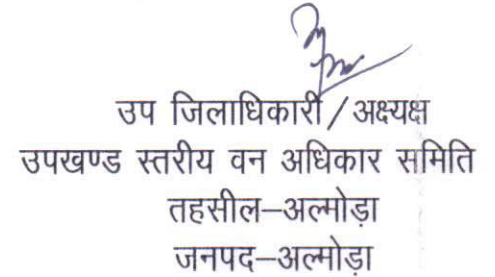 उप जिलाधिकारी/अक्ष्यक्ष
उपखण्ड स्तरीय वन अधिकार समिति
तहसील–अल्मोड़ा
जनपद–अल्मोड़ा